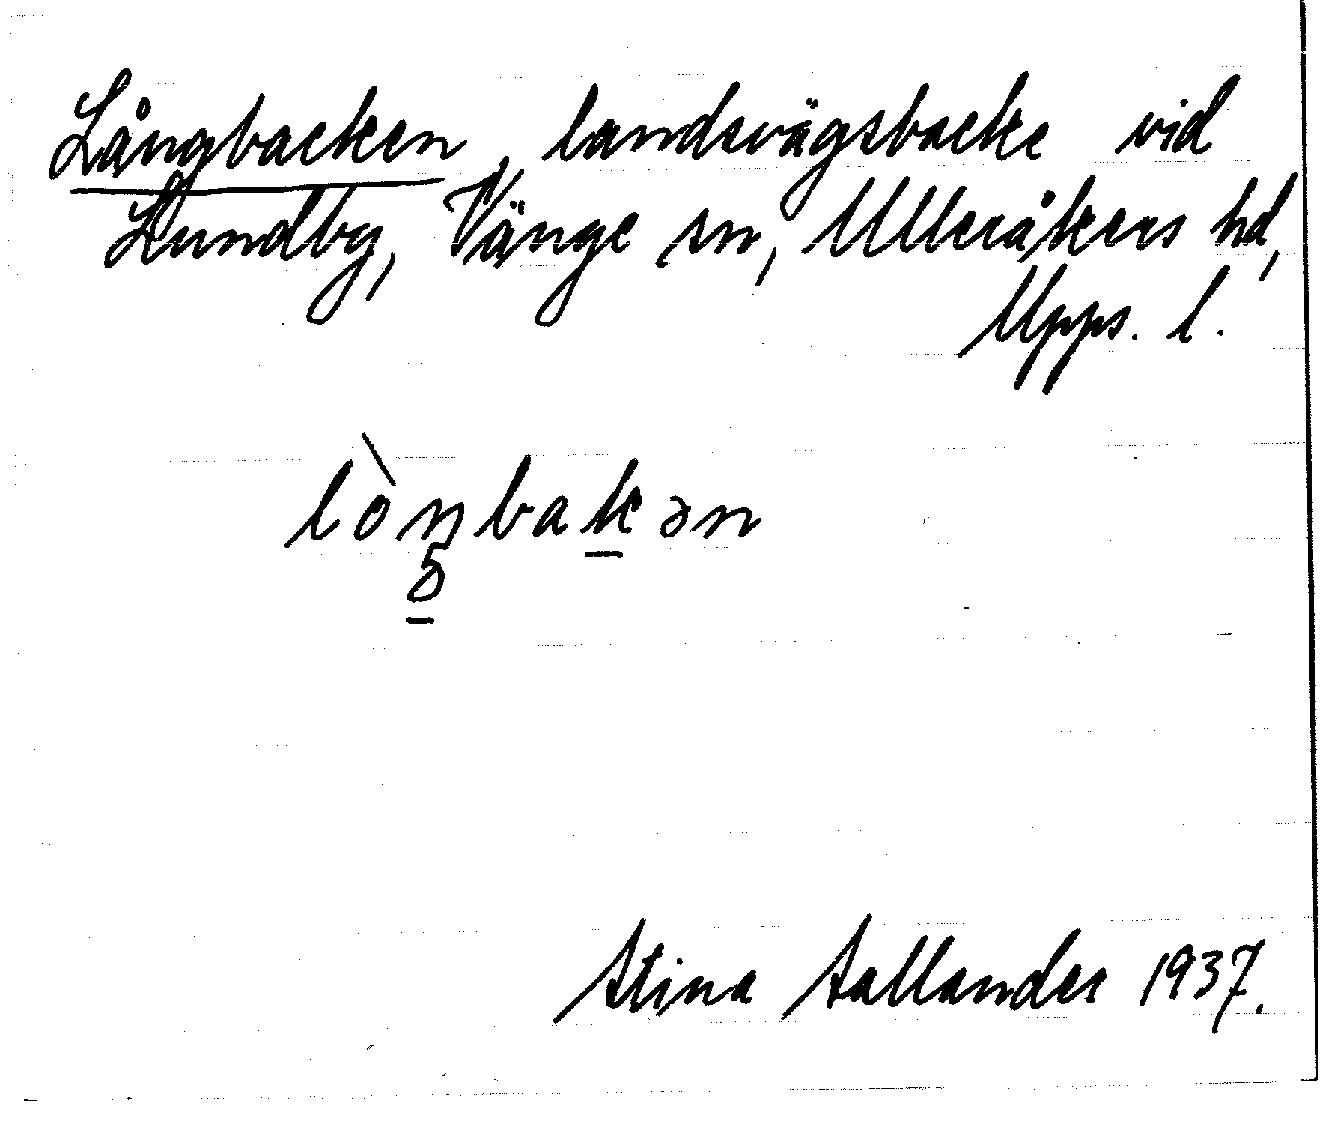 Långbacken, landsvägsbacke vid
Lundby, Vänge sn, Ulleråkers hd,
Upps. l.
lòŋbakən
5
Stina Sallander 1937.